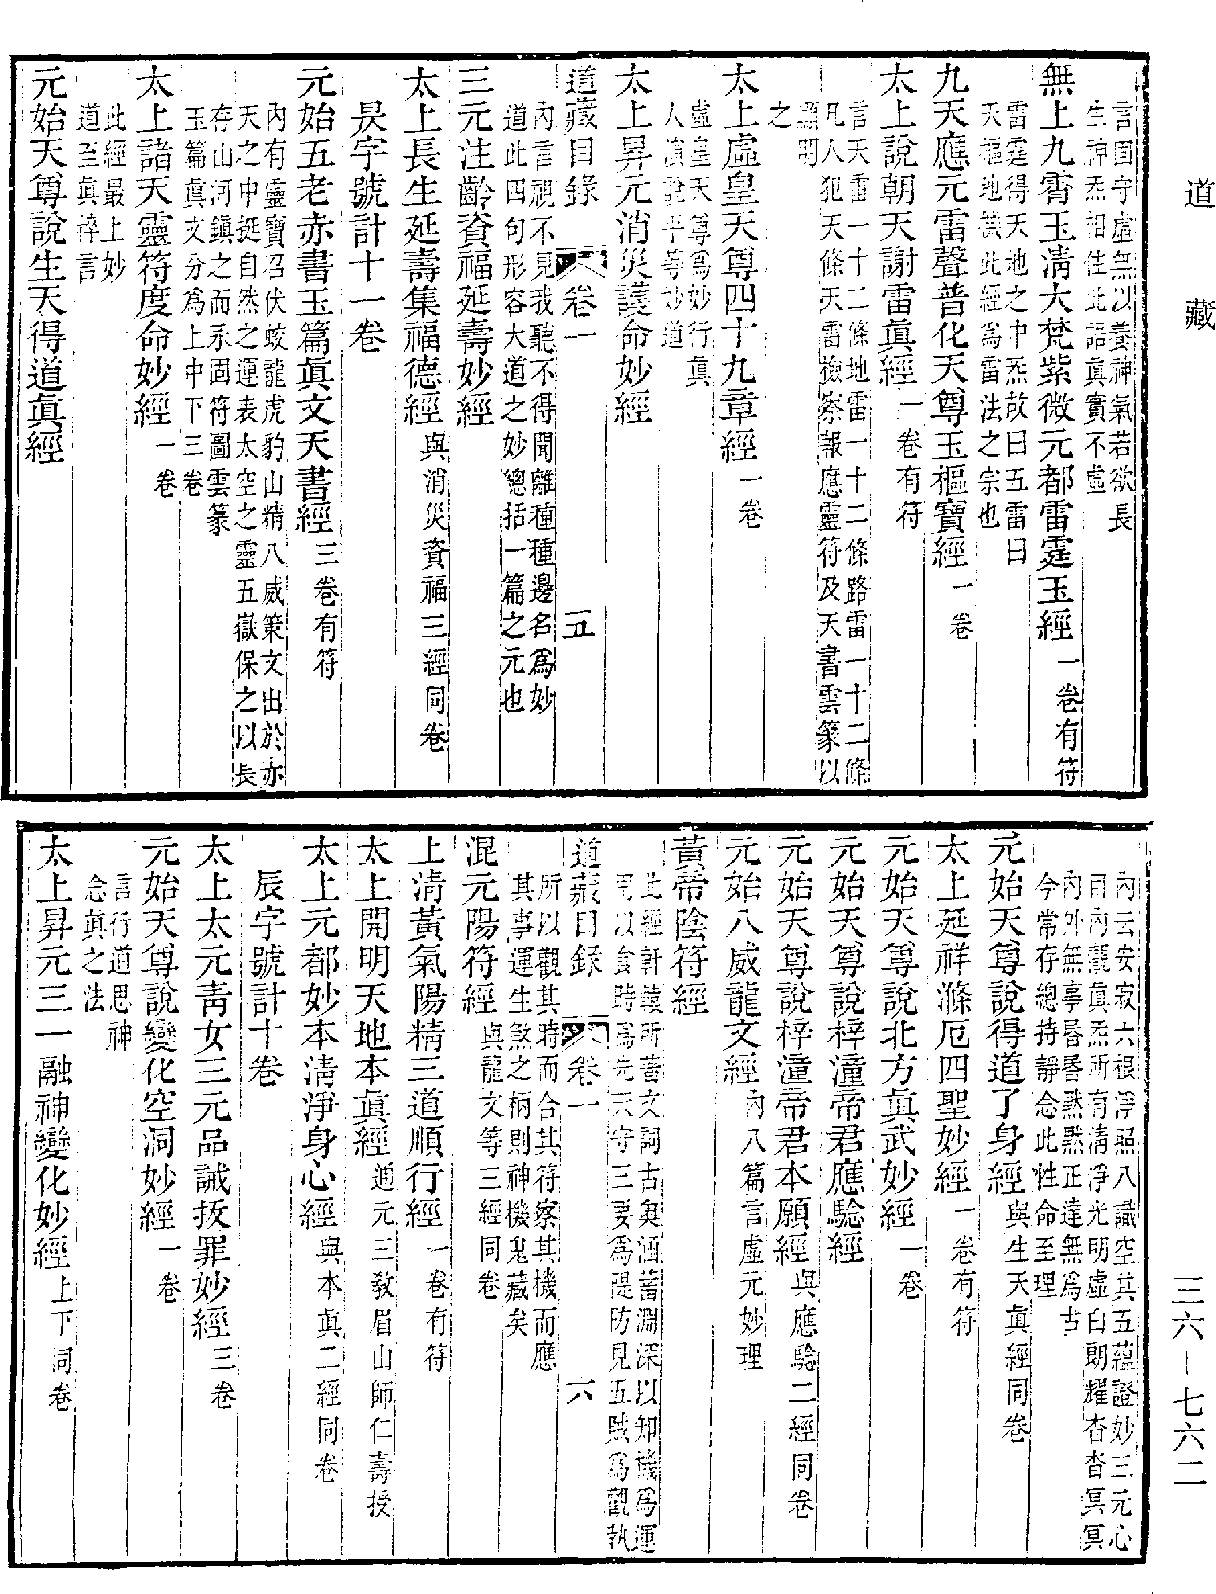 道藏
言固守虛無以養神氣若欲長
生神炁相住此語真實不虛
無上九霄玉淸大梵紫微元都雷霆玉經一卷有符
雷霆得天地之中炁故曰五雷曰
天樞地機此經爲雷法之宗也
九天應元雷聲普化天尊玉樞寶經一卷
太上說朝天謝雷眞經一卷有符
言天雷一十二條地雷一十二條路雷一十二條
凡人犯天條天雷檢察報應靈符及天書雲篆以
照明
之
太上虛皇天尊四十九章經一卷
虛皇天尊爲妙行眞
人演說平等妙道
太上昇元消災護命妙經
道藏目錄 卷一 五
內言視不見我聽不得聞離種種邊名爲妙
道此四句形容大道之妙總括一篇之元也
三元注齡資福延壽妙經
太上長生延壽集福德經與消災資福三經同卷
昃字號計十一卷
元始五老赤書玉篇眞文天書經三卷有符
內有靈寶召伏蛟龍虎豹山精八威策文出於亦
天之中挺自然之運表太空之靈五嶽保之以長
存山河鎭之而永固符圖雲篆
玉篇眞文分爲上中下三卷
太上諸天靈符度命妙經一卷
此經最上妙
道至眞禪言
元始天尊說生天得道眞經
內云安寂六根淨照八識空其五蘊證妙三元心
目內觀眞炁所有淸淨光明虛白朗耀杳杳冥冥
內外無事昏昏默默正達無爲古
今常存總持靜念此性命至理
元始天尊說得道了身經與生天眞經同卷
太上延祥滌厄四聖妙經一卷有符
元始天尊說北方眞武妙經一卷
元始天尊說梓潼帝君應驗經
元始天尊說梓潼帝君本願經與應驗二經同卷
元始八威龍文經內八篇言虛元妙理
黃帝陰符經
此經軒轅所著文詞古奧涵蓄淵深以知機爲運
用以食時爲先天守三要爲隄防見五賊爲觀執
道藏目錄 卷一 六
所以觀其時而合其符察其機而應
其事運生煞之柄則神機鬼藏矣
混元陽符經與龍文等三經同卷
上淸黃氣陽精三道順行經一卷有符
太上開明天地本眞經通元三敎眉山師仁壽授
太上元都妙本淸淨身心經與本眞二經同卷
辰字號計十卷
太上太元靑女三元品誡拔罪妙經三卷
元始天尊說變化空洞妙經一卷
言行道思神
念眞之法
太上昇元三一融神變化妙經上下同卷
三六—七六二